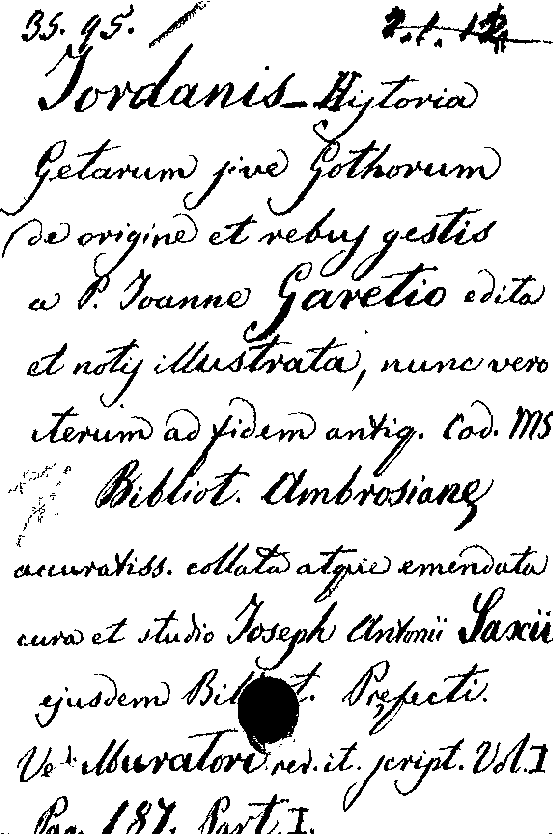 35. 95. 2. 1. 12
Jordanis Hystoria
Getarum sive Gothorum
de origine et rebus gestis
a P. Joanne Garetio edita
et notis illustrata, nunc vero
iterum ad fidem antiq. Cod. MS
Bibliot. Ambrosianę
accuratiss. collata atque emendata
cura et studio Joseph Antonii Saxii
ejusdem Pręfecti.
Ved. Muratori rer. it. script. Vol. I
Pag. 187. Part. I.